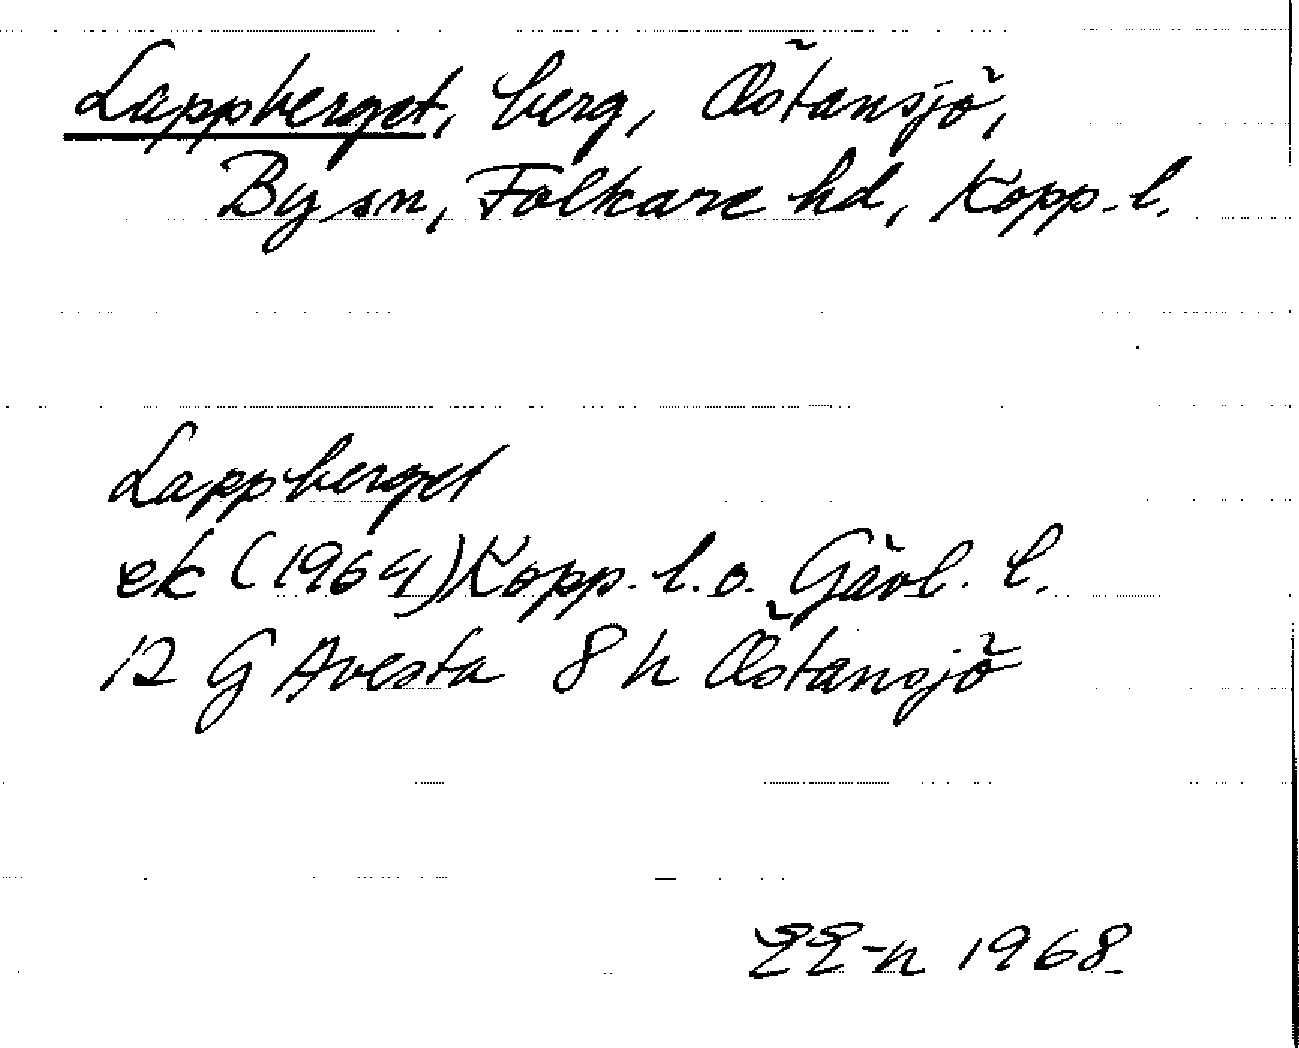 Lappberget, berg, Östansjö,
By sn, Folkare hd, Kopp. l.
Lappberget
ek (1964) Kopp. l. o. Gävl. l.
12 G Avesta 8 h Östansjö
EE-n 1968